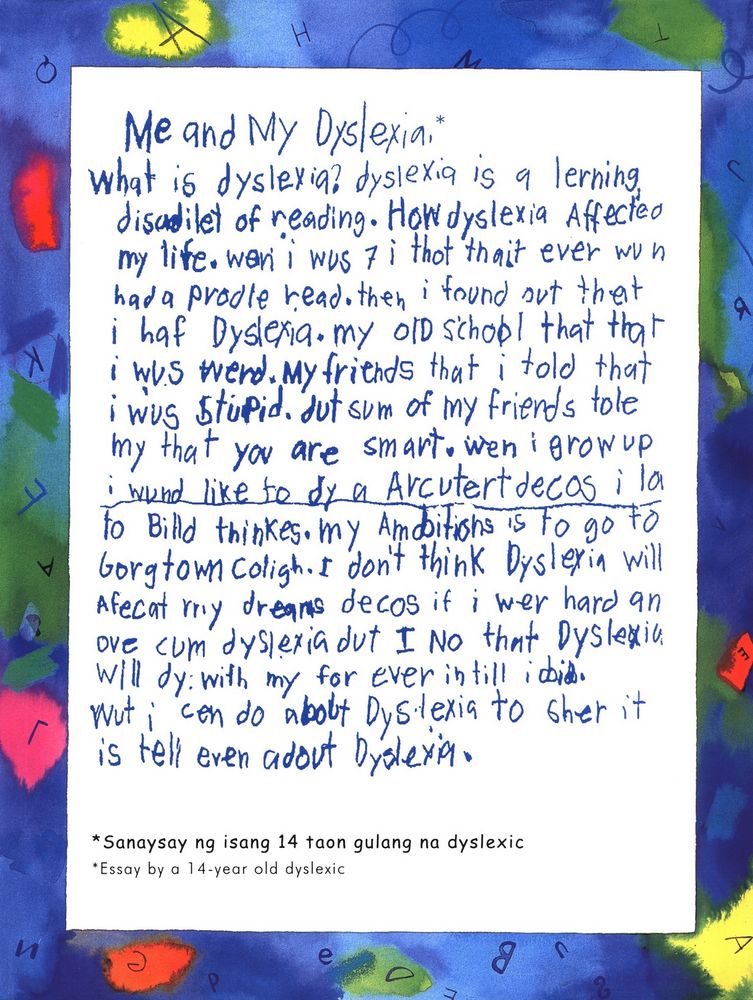 Me and My Dyslexia.*
What is dyslexia? dyslexia is a lerning
disadilet of reading. How dyslexia Affected
my life. wen i wus 7 i thot thait ever wun
had a prodle read. then i found out that
i haf Dyslexia. my olD school that that
i wus werd. My friends that i told that
i wus stupid. dut sum of my friends tole
my that you are smart. wen i grow up
i wund like to dy a Arcutert decos i la
to Billd thinkes. my Amditions is to go to
Gorgtown Coligh. I don't think Dyslexia will
Afecat my dreams decos if i wer hard an
ove cum dyslexia dut I No that Dyslexia
Will dy. with my for ever in till i did.
Wut i cen do about Dyslexia to sher it
is tell even adout Dyslexia.
*Sanaysay ng isang 14 taon gulang na dyslexic
*Essay by a 14-year old dyslexic